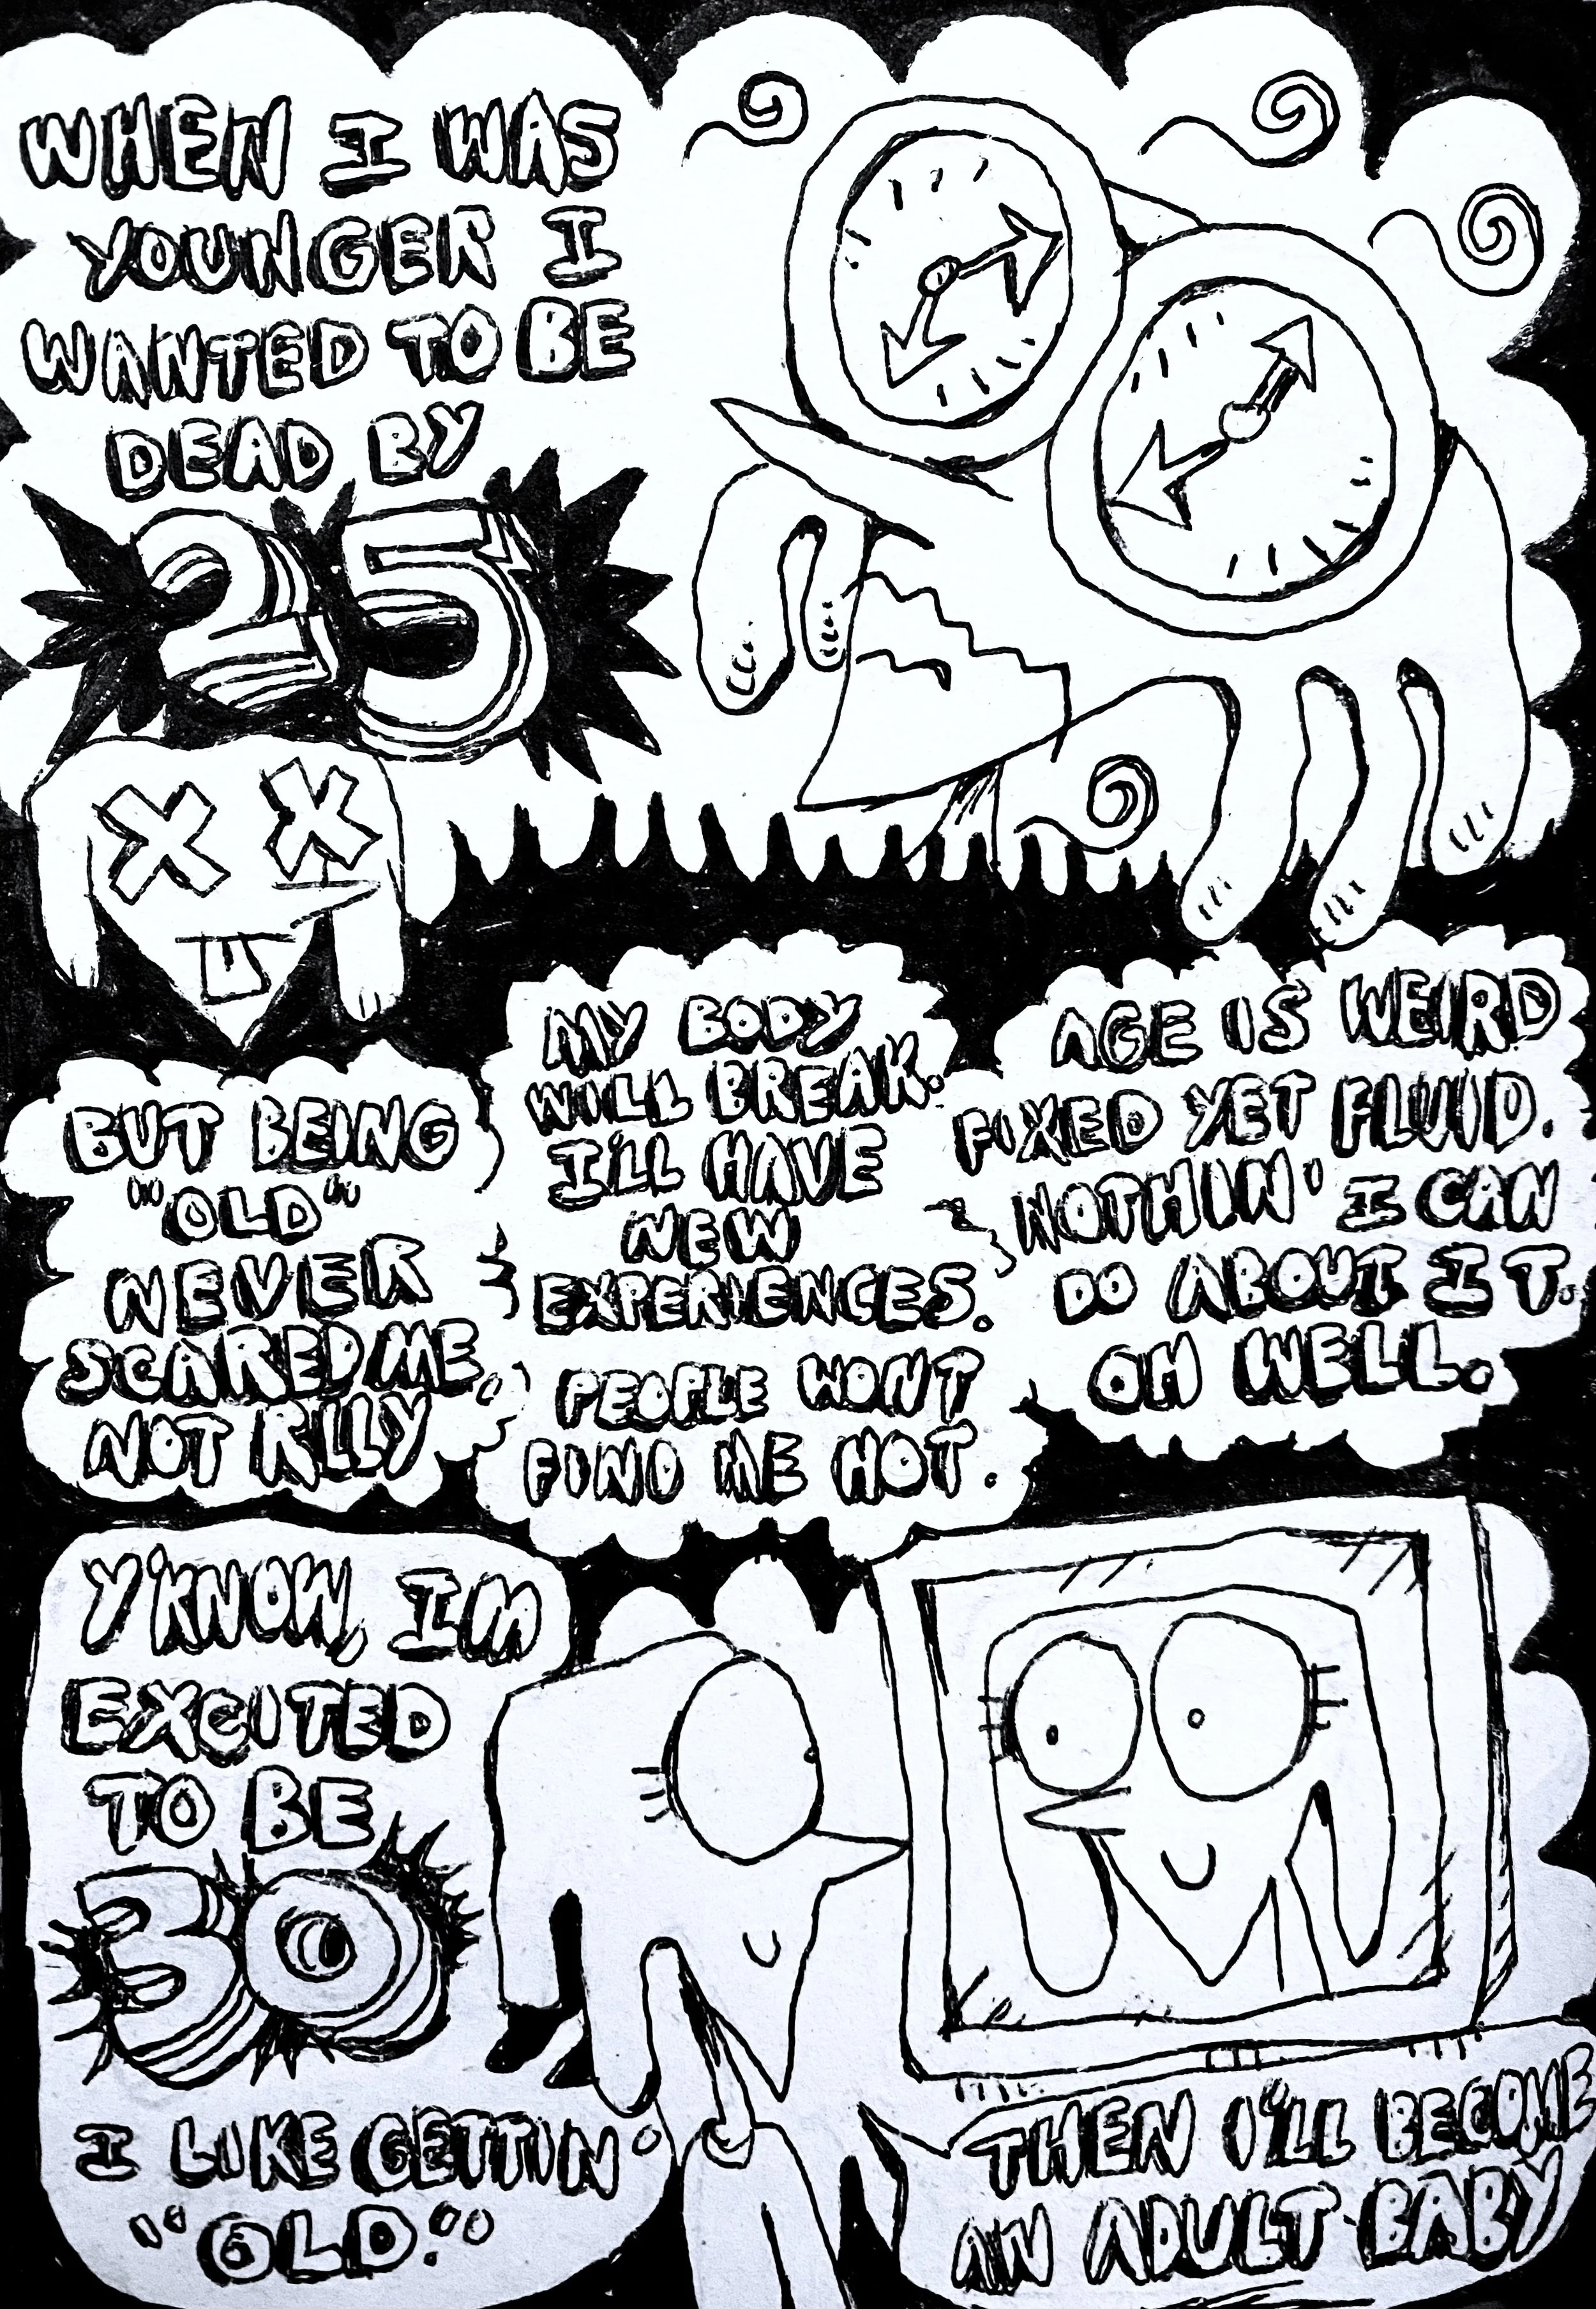 WHEN I WAS
YOUNGER I
WANTED TO BE
DEAD BY
25
BUT BEING
"OLD"
NEVER
SCARED ME.
NOT RLLY
MY BODY
WILL BREAK.
I'LL HAVE
NEW
EXPERIENCES.
PEOPLE WONT
FIND ME HOT.
AGE IS WEIRD
FIXED YET FLUID.
NOTHIN' I CAN
DO ABOUT IT.
OH WELL.
Y'KNOW, IM
EXCITED
TO BE
30
I LIKE GETTIN'
"OLD."
THEN I'LL BECOME
AN ADULT BABY